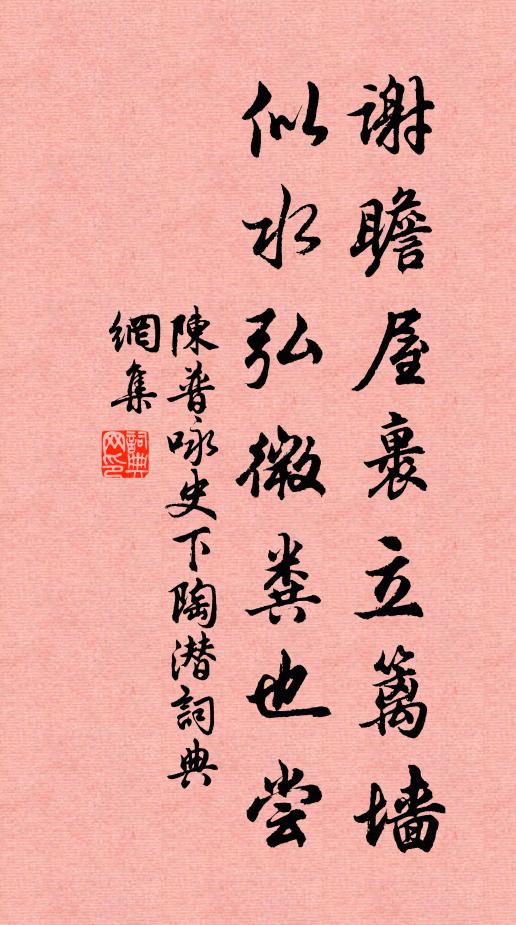 谢瞻屋裹立篱墙
似水弘微粪也尝
陳普咏史下陶潜詞典
網集
詞典
网印